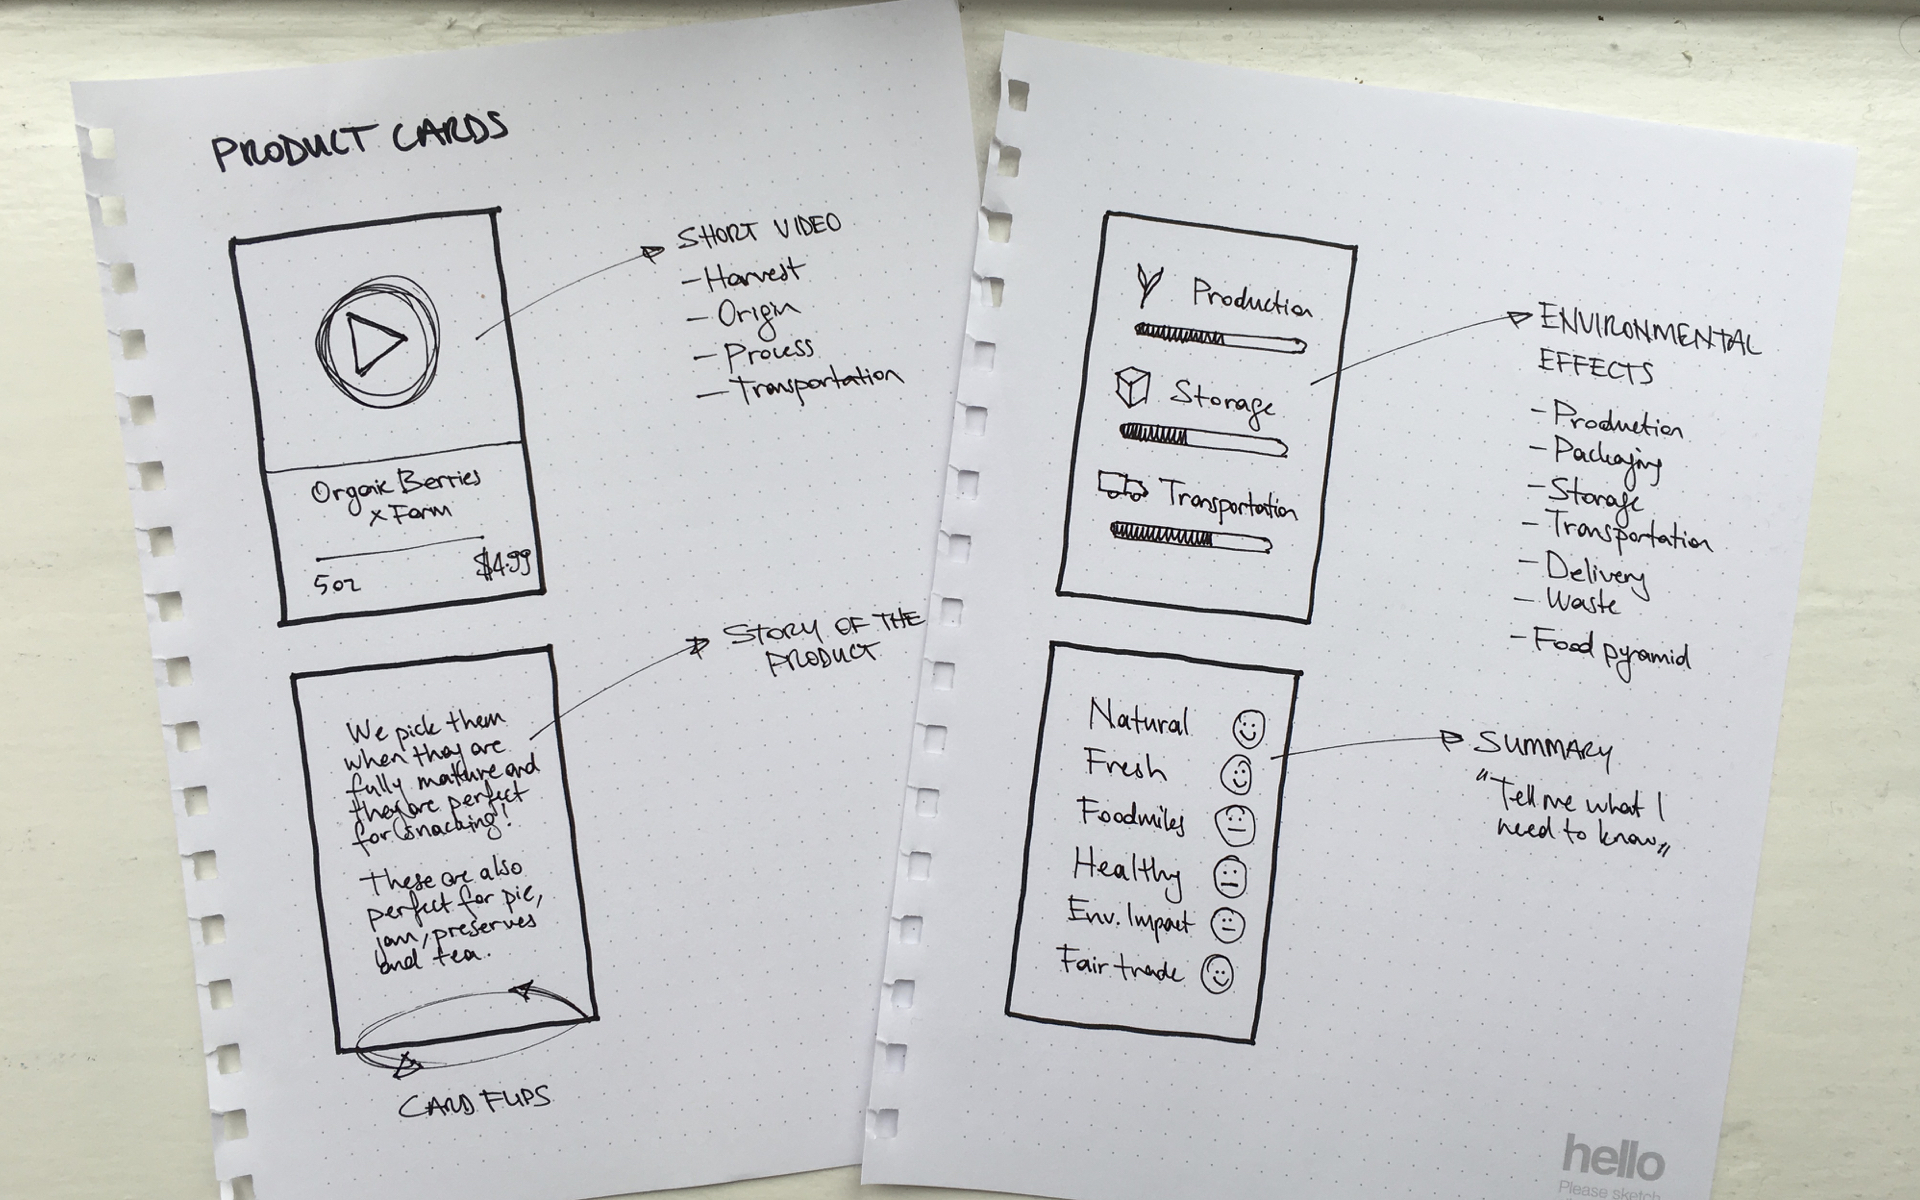 PRODUCT CARDS
SHORT VIDEO
- Harvest
- Origin
- Process
- Transportation
Organic Berries
x Farm
5oz
$4.99
STORY OF THE
PRODUCT
We pick them
when they are
fully mature and
they are perfect
for snacking!
These are also
perfect for pie,
jam, preserves
and tea.
CARD FLIPS
Production
Storage
Transportation
ENVIRONMENTAL
EFFECTS
- Production
- Packaging
- Storage
- Transportation
- Delivery
- Waste
- Food pyramid
Natural
Fresh
Foodmiles
Healthy
Env. Impact
Fair trade
SUMMARY
"Tell me what I
need to know"
hello
Please sketch